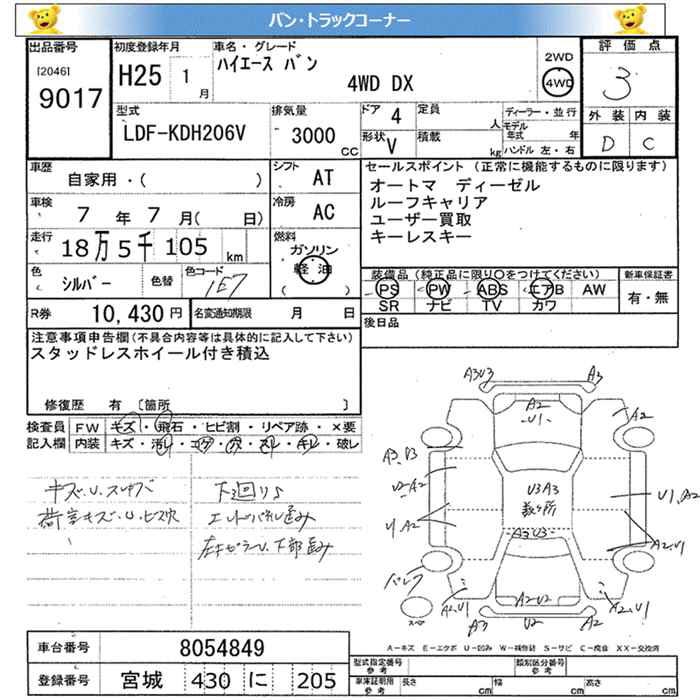 バン・トラックコーナー
出品番号 初度登録年月 車名・グレード 評価点
[2046] 9017 H25 1月 ハイエース バン 2WD 3
4WD DX 4WD
外装 内装
D C
型式 排気量 ドア 4 定員 人 ディーラー・並行
LDF-KDH206V 3000 CC 形状 V 積載 kg モデル年式 年
ハンドル 左・右
車歴 自家用・( ) シフト AT セールスポイント (正常に機能するものに限ります)
車検 7年 7月( 日) 冷房 AC オートマ ディーゼル
ルーフキャリア
ユーザー買取
キーレスキー
走行 18万5千105 km 燃料 ガソリン
軽油
( )
色 シルバー 色替 色コード 1E7
装備品 (純正品に限り○をつけてください) 新車保証書
PS PW ABS エアB AW 有・無
SR ナビ TV カワ
R券 10,430円 名変通知期限 月 日 後日品
注意事項申告欄(不具合内容等は具体的に記入して下さい)
スタッドレスホイール付き積込
修復歴 有 〔箇所 〕
検査員 FW キズ・飛石・ヒビ割・リペア跡・×要
記入欄 内装 キズ・汚れ・コゲ・穴・スレ・キレ・破レ
キズ.U.スリキズ 下回りS
荷室キズ.U.ビス穴
A3U3 A3
A2 U1 A2
A3.U3
U2.A2 U3A3 U1.A2
数ヶ所
U.A2 A3U3 A2.U1
A2.U1 A2.U2 A2.U1
A3 U2 A3
A-キズ E-エクボ U-凹み W-補修跡 S-サビ C-腐食 XX-交換済
車台番号 8054849
登録番号 宮城 430 に 205
型式指定番号 参考 類別区分番号 参考
車庫証明用 参考 長さ cm 幅 cm 高さ cm